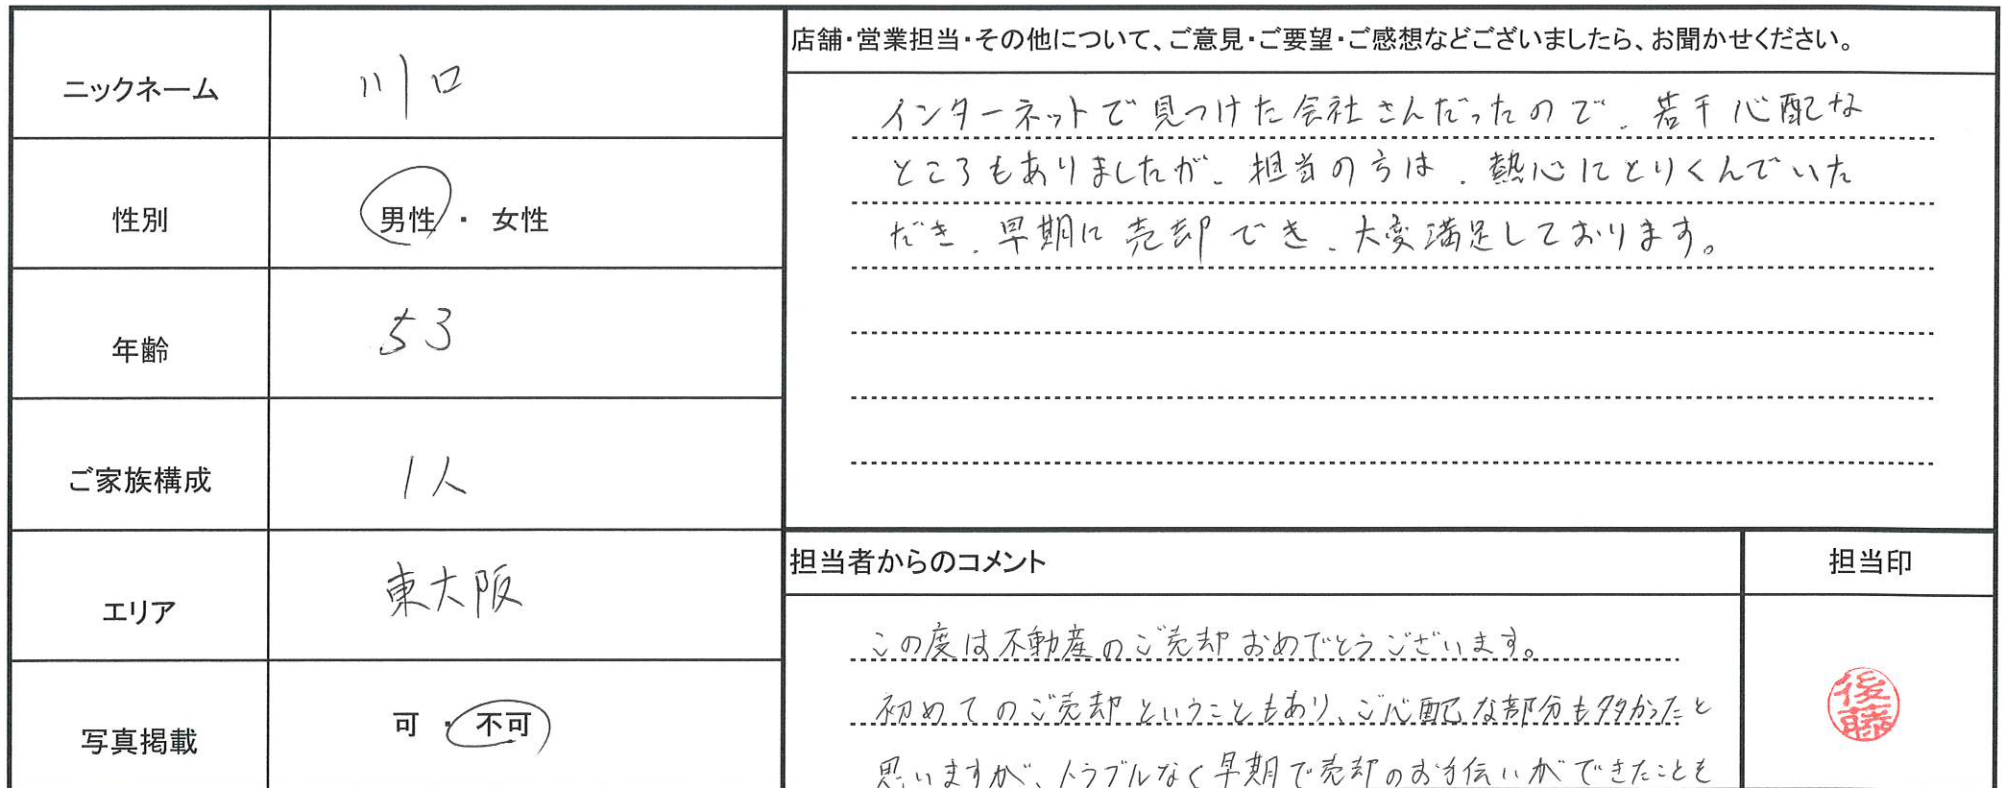 ニックネーム 川口
性別 男性 ・ 女性
年齢 53
ご家族構成 1人
エリア 東大阪
写真掲載 可 ・ 不可
店舗・営業担当・その他について、ご意見・ご要望・ご感想などございましたら、お聞かせください。
インターネットで見つけた会社さんだったので、若干心配な
ところもありましたが、担当の方は、熱心にとりくんでいた
だき、早期に売却でき、大変満足しております。
担当者からのコメント
この度は不動産のご売却おめでとうございます。
初めてのご売却ということもあり、ご心配な部分も多かったと
思いますが、トラブルなく早期で売却のお手伝いができたことを
担当印
後藤